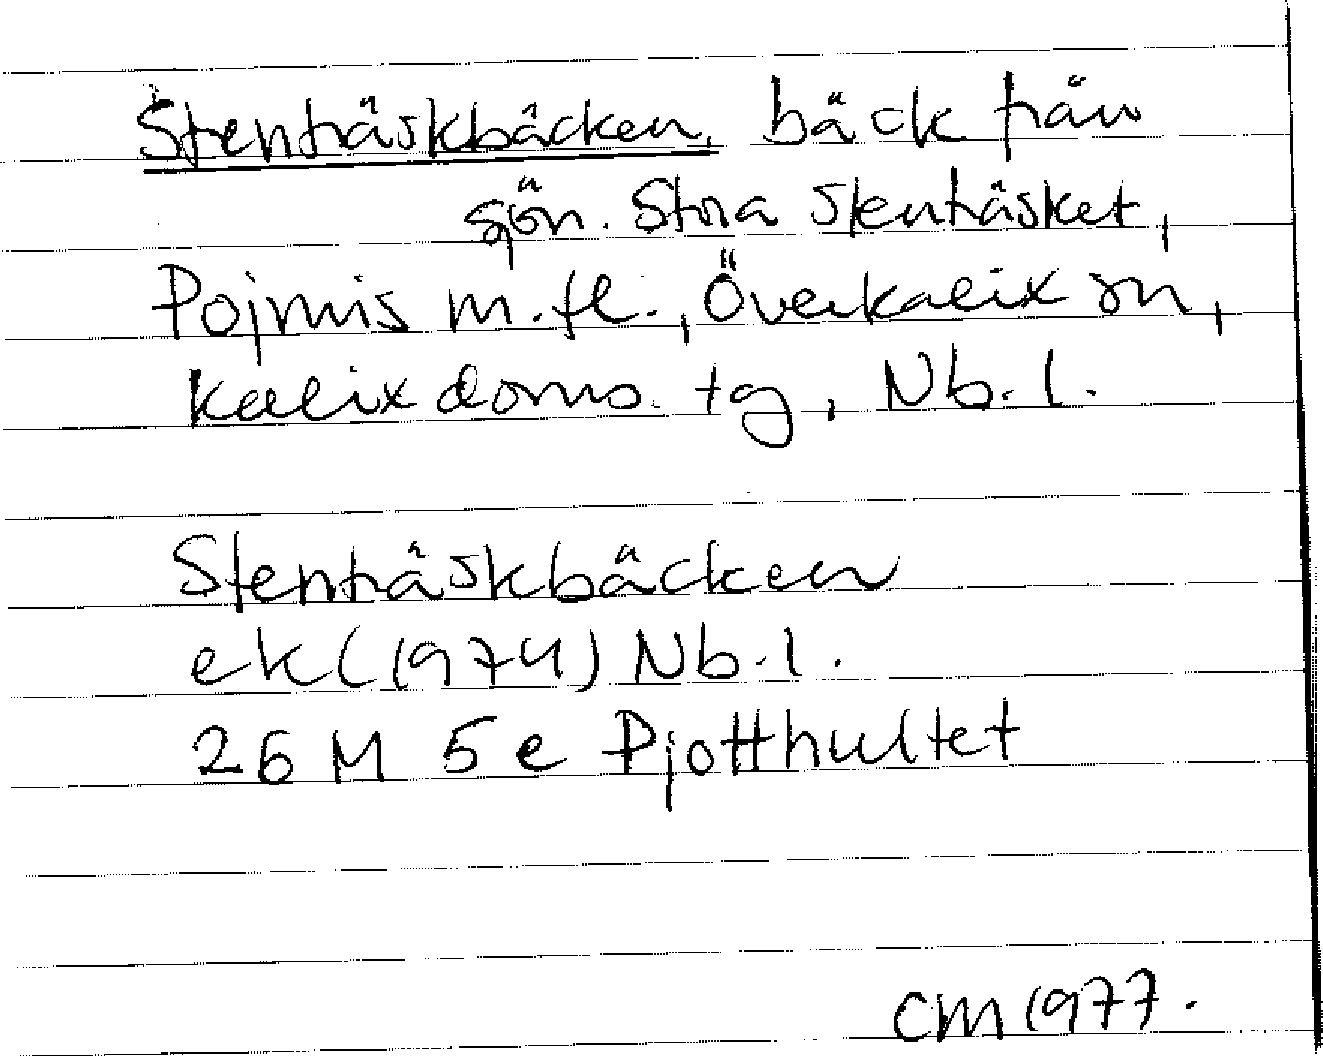 Stenträskbäcken, bäck från
sjön. Stora Stenträsket,
Pojmis m.fl., Överkalix sn,
Kalix doms. tg, Nb.l.
Stenträskbäcken
ek (1974) Nb.l.
26 M 5 e Pjotthultet
CM 1977.